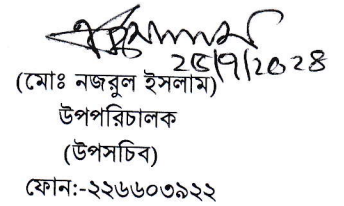 ২৫/৭/২০২৪
(মোঃ নজরুল ইসলাম)
উপপরিচালক
(উপসচিব)
ফোন:-২২৬৬০৩৯২২